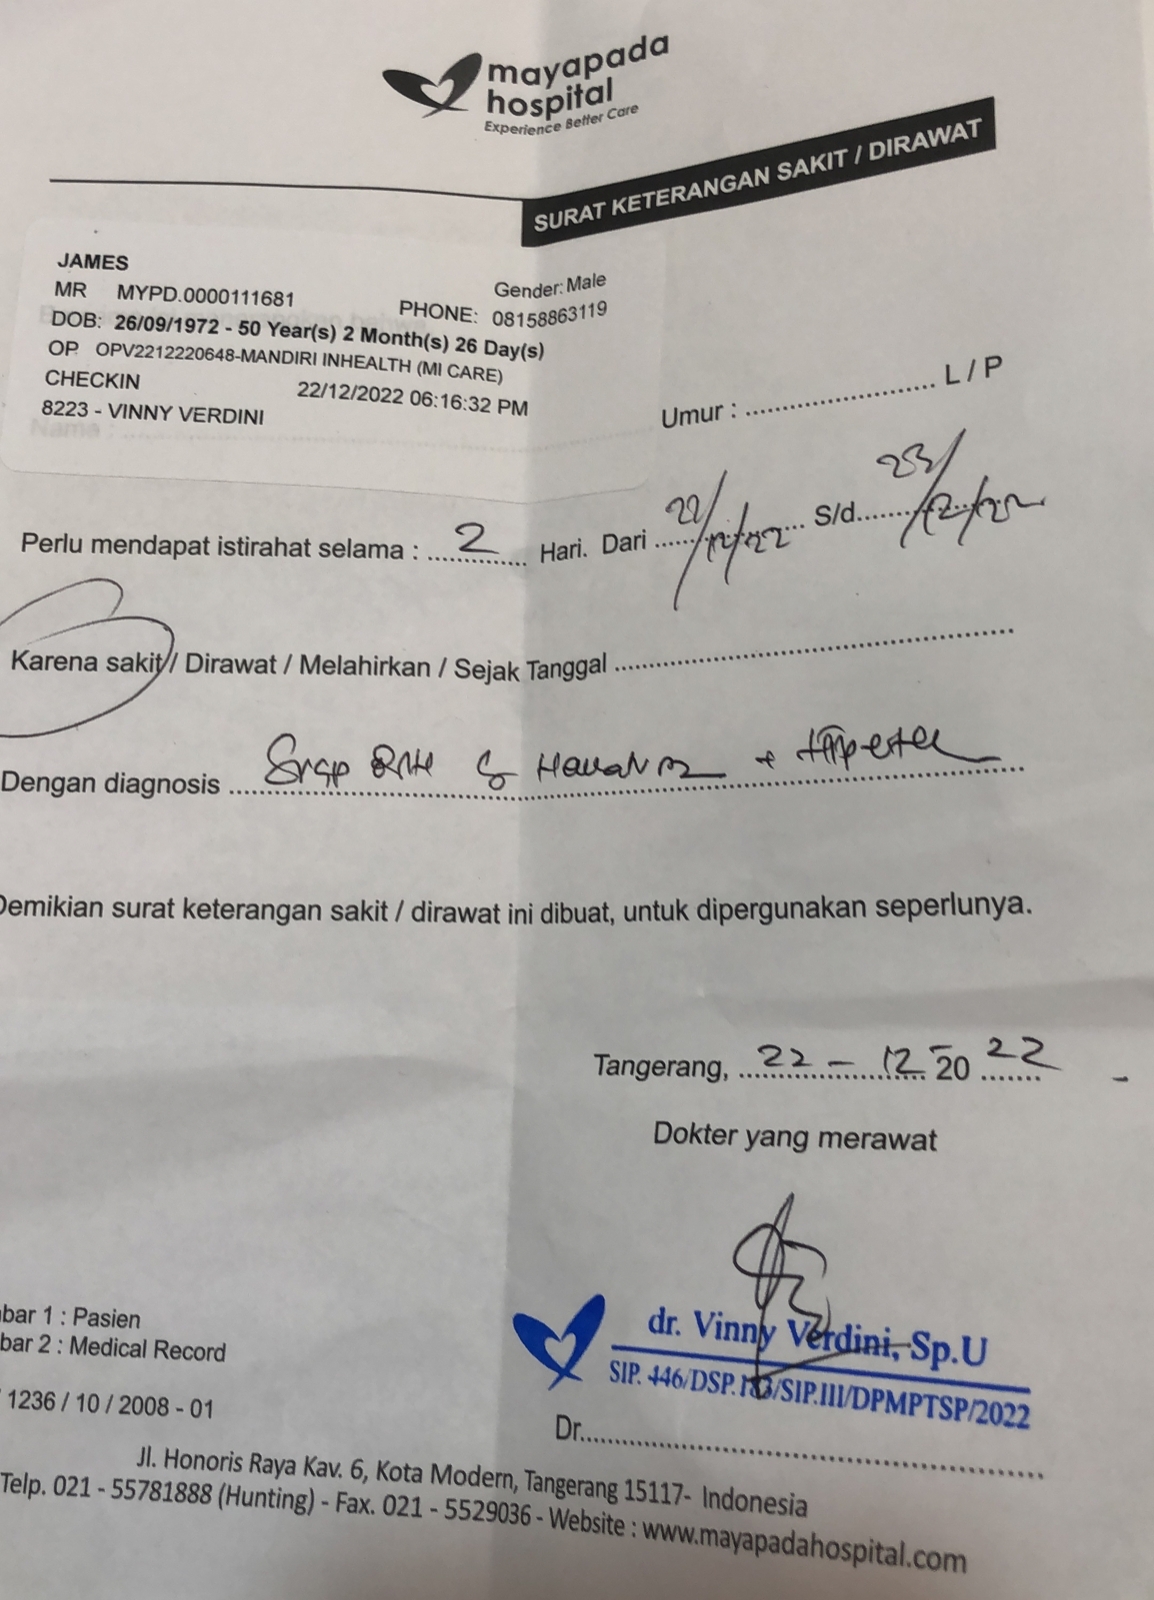 mayapada
hospital
Experience Better Care
SURAT KETERANGAN SAKIT / DIRAWAT
JAMES
Gender: Male
MR MYPD.0000111681
PHONE: 08158863119
DOB: 26/09/1972 - 50 Year(s) 2 Month(s) 26 Day(s)
OP OPV2212220648-MANDIRI INHEALTH (MI CARE)
CHECKIN 22/12/2022 06:16:32 PM
8223 - VINNY VERDINI
Nama :
Umur : .......... L / P
Perlu mendapat istirahat selama : 2 Hari. Dari 22/12/22 S/d 23/12/22
Karena sakit / Dirawat / Melahirkan / Sejak Tanggal ..........
Dengan diagnosis
Demikian surat keterangan sakit / dirawat ini dibuat, untuk dipergunakan seperlunya.
Tangerang, 22 - 12 - 20 22
Dokter yang merawat
dr. Vinny Verdini, Sp.U
SIP. 446/DSP.183/SIP.III/DPMPTSP/2022
Dr..........
bar 1 : Pasien
bar 2 : Medical Record
1236 / 10 / 2008 - 01
Jl. Honoris Raya Kav. 6, Kota Modern, Tangerang 15117- Indonesia
Telp. 021 - 55781888 (Hunting) - Fax. 021 - 5529036 - Website : www.mayapadahospital.com